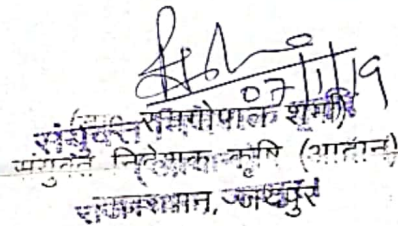 07/1/19
रामगोपाल शर्मा)
संयुक्त निदेशक कृषि (आदान)
राजस्थान, जयपुर